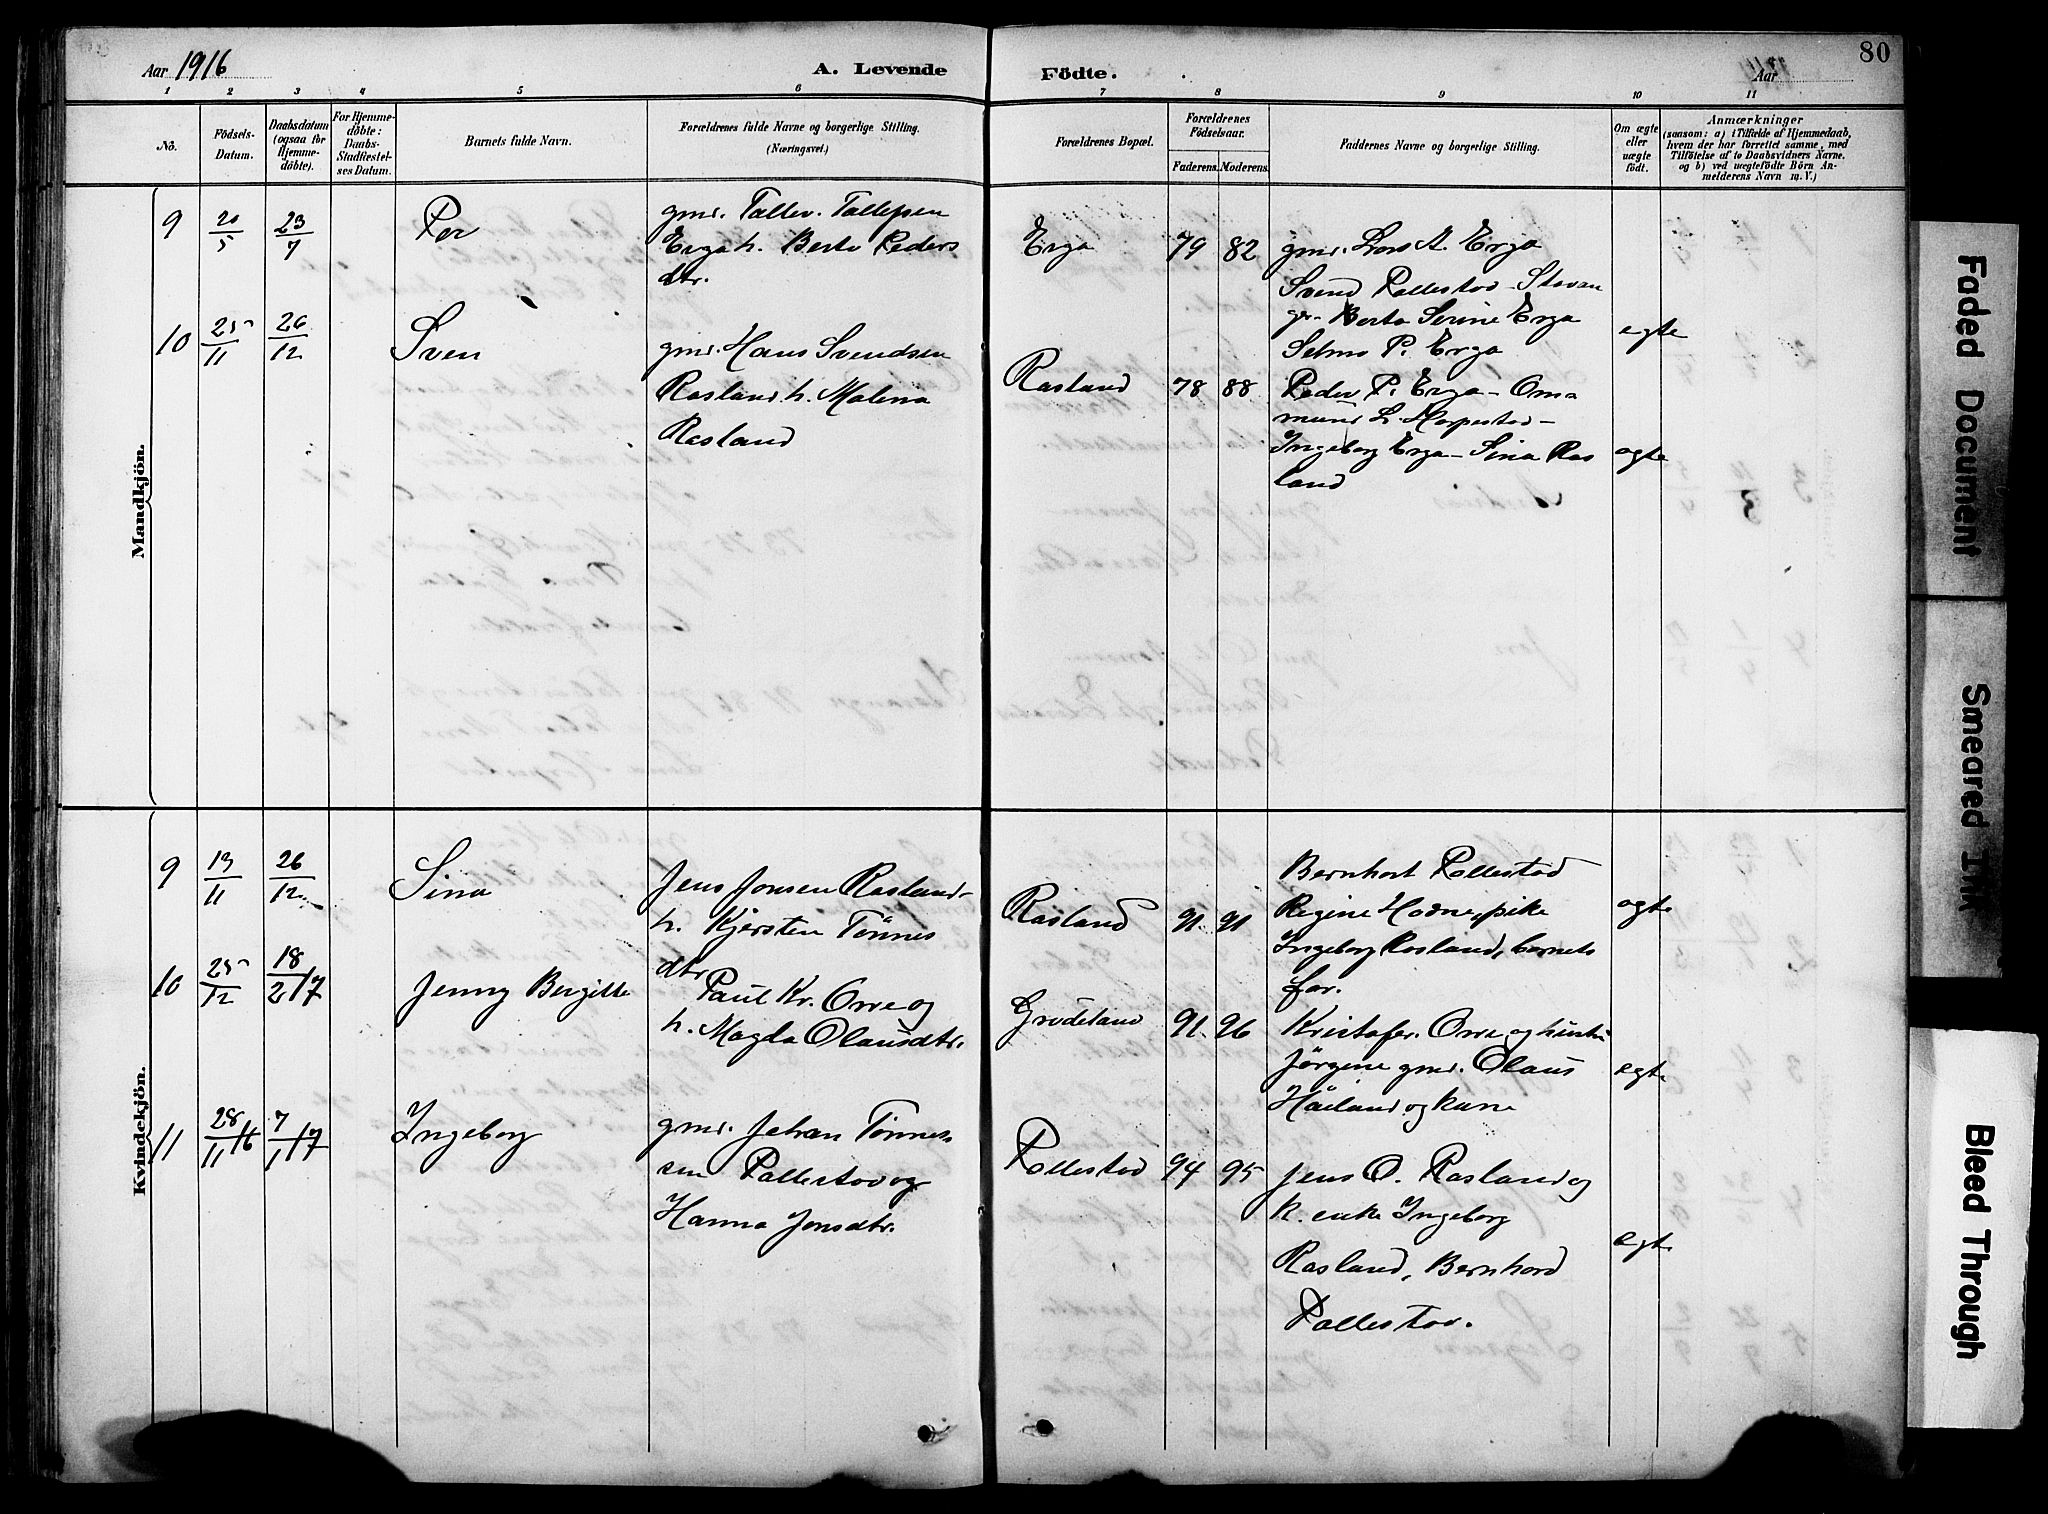 Aar 1916
A. Levende Födte.
Aar
80
1 2 3 4 5 6 7 8 9 10 11
No.
Födsels-Datum.
Daabsdatum (ogsaa for Hjemmedöbte).
For Hjemmedöbte: Daabs-Stadfæstelses Datum.
Barnets fulde Navn.
Forældrenes fulde Navne og borgerlige Stilling.
(Næringsvei.)
Forældrenes Bopæl.
Forældrenes Födselsaar.
Faderens. Moderens.
Faddernes Navne og borgerlige Stilling.
Om ægte eller uægte födt.
Anmærkninger
(saasom: a) i Tilfælde af Hjemmedaab,
hvem der har forrettet samme, med
Tilföielse af to Daabsvidners Navne,
og b) ved uægtefödte Börn Anmelderens Navn m. V.)
Mandkjön.
9 20/5 23/7 Per
gmd. Tallev. Tallefsen
Erga h. Berta Peders
dtr.
Erga 79 82
gmd. Lars A. Erga
Svend Pollestad - Stavan
ger - Berta Serine Erga
Selma P. Erga
egte
10 25/11 26/12 Sven
gmd. Hans Svendsen
Rasland h. Malena
Rasland
Rasland 78 88
Peder P. Erga - Om-
mund L. Horpestad -
Ingeborg Erga - Sina Ras
land
egte
Kvindekjön.
9 13/11 26/12 Sina
Jens Jonsen Rasland -
h. Kjersten Tönnes
dtr
Rasland 91. 91
Bernhart Pollestad
Regine Hodne, pike
Ingeborg Rasland, barnets
far.
egte
10 25/12 18/2 17 Jenny Bergitte
Paul Kr. Orre og
h. Magda Olausdtr.
Grudeland 91. 96
Kristofer Orre og hustru
Jörgine gmd. Olaus
Höiland og kone
egte
11 28/11 16 7/1 17 Ingeborg
gmd. Johan Tönnes
sen Pollestad og
Hanna Jonsdtr.
Pollestad 94 95
Jens O. Rasland og
k. enke Ingeborg
Rasland, Bernhard
Pollestad.
egte
Faded Document
Smeared Ink
Bleed Through